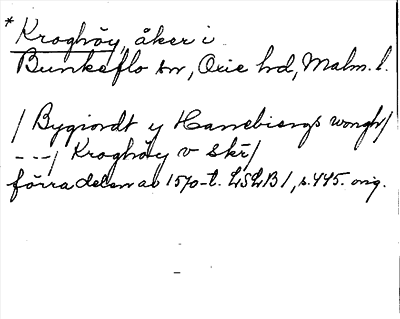 * Kroghöy, åker i
Bunkeflo sn, Oxie hd, Malm. l.
/ Bygiordt y Hanebiergs wongh/
---/ Kroghöy v skr/
förra delen av 1570-t. LSLB 1, s. 445. orig.